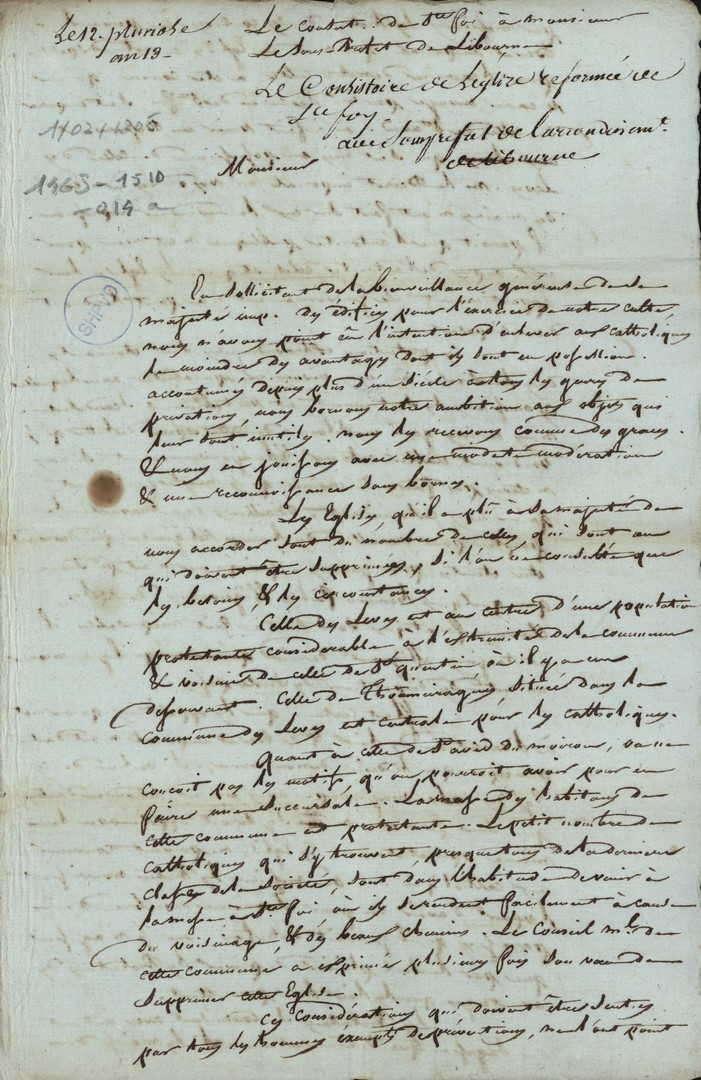 Le 12. pluviose
an 13 -
Le consist. de Ste foi à monsieur
Le Sous-Préfet de Libourne
Le Consistoire de L'eglise reformée de
Ste foy
au Sousprefet de l'arrondissemt.
de Libourne
11024 1205
1963-1510
-214 a
Monsieur
SHPVD
En sollicitant de la bienveillance généreuse de sa
majesté imp. des édifices pour l'exercice de notre culte,
nous n'avons point eu l'intention d'enlever aux Catholiques
le moindre des avantages dont ils sont en possession.
accoutumés depuis plus d'un siécle à tous les genres de
privations, nous bornons notre ambition aux objets qui
leur sont inutiles. nous les recevons comme des graces.
& nous en jouissons avec une modeste moderation
& une reconnoissance sans bornes.
Les Eglises, qu'il a plû à sa majesté de
nous accorder sont du nombre de celles, qui sont ou
qui doivent être supprimées, si l'on ne consulte que
les besoins, & les circonstances.
Celle des Leves est au centre d'une population
protestante considerable à l'extremité de la commune
& voisine de celle de St quentin où il y a un
desservant. Celle de Thoumeiragues, située dans la
commune des Leves est centrale pour les catholiques.
Quant à celle de St avid du moiron, on ne
concoit pas les motifs, qu'on pourroit avoir pour en
faire une succursale. La masse des habitans de
cette commune est protestante. Le petit nombre de
Catholiques qui s'y trouvent, presque tous de la derniere
classe de la société, sont dans l'habitude de venir à
la messe à Ste foi où ils se rendent facilement à cause
du voisinage, & des beaux chemins. Le Conseil mal. de
cette commune a exprimé plusieurs fois son vœu de
supprimer cette Eglise.
Ces considérations qui doivent être senties
par tous les hommes exempts de préventions, ne l'ont point